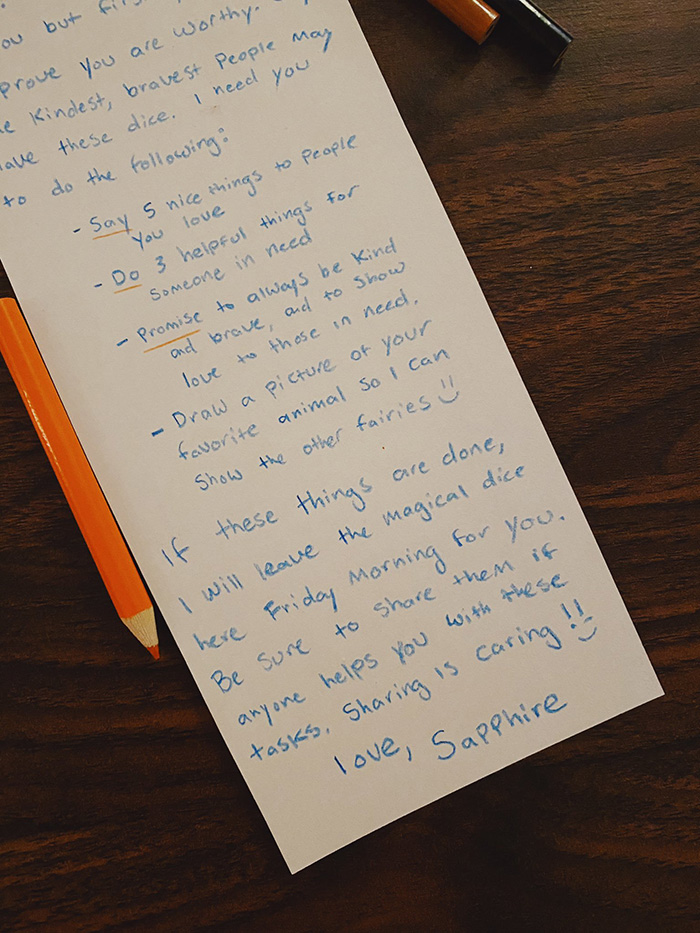 ou but first,
prove you are worthy.
Kindest, bravest People may
have these dice. I need you
to do the following:
- Say 5 nice things to people
you love
- Do 3 helpful things for
Someone in need
- Promise to always be kind
and brave, and to show
love to those in need.
- Draw a picture of your
favorite animal so I can
Show the other fairies !!
If these things are done,
I will leave the magical dice
here Friday Morning for you.
Be sure to share them if
anyone helps you with these
tasks. Sharing is caring !!
Love, Sapphire